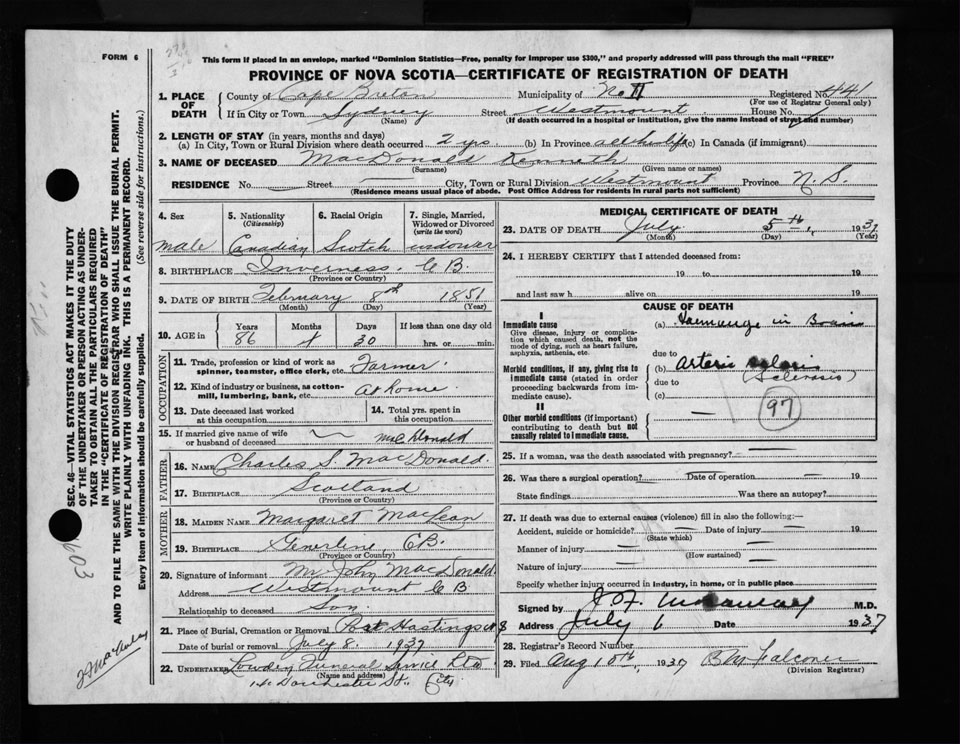 FORM 6
This form if placed in an envelope, marked "Dominion Statistics—Free, penalty for improper use $300," and properly addressed will pass through the mail "FREE"
PROVINCE OF NOVA SCOTIA—CERTIFICATE OF REGISTRATION OF DEATH
SEC. 46—VITAL STATISTICS ACT MAKES IT THE DUTY
OF THE UNDERTAKER OR PERSON ACTING AS UNDER-
TAKER TO OBTAIN ALL THE PARTICULARS REQUIRED
IN THE "CERTIFICATE OF REGISTRATION OF DEATH"
AND TO FILE THE SAME WITH THE DIVISION REGISTRAR WHO SHALL ISSUE THE BURIAL PERMIT.
WRITE PLAINLY WITH UNFADING INK. THIS IS A PERMANENT RECORD.
Every item of information should be carefully supplied. (See reverse side for instructions.)
603
1. PLACE OF DEATH
County of Cape Breton Municipality of No Registered No. 441
(For use of Registrar General only)
If in City or Town Sydney Street Westmount House No.
(Name) (If death occurred in a hospital or institution, give the name instead of street and number)
2. LENGTH OF STAY (in years, months and days)
(a) In City, Town or Rural Division where death occurred 2 yrs (b) In Province all his life (c) In Canada (if immigrant)
3. NAME OF DECEASED MacDonald Kenneth
(Surname) (Given name or names)
RESIDENCE No. Street City, Town or Rural Division Westmount Province N. S.
(Residence means usual place of abode. Post Office Address for residents in rural parts not sufficient)
4. Sex 5. Nationality (Citizenship) 6. Racial Origin 7. Single, Married, Widowed or Divorced (write the word)
male Canadian Scotch widower
8. BIRTHPLACE Inverness. C B.
(Province or Country)
9. DATE OF BIRTH February 8 1851
(Month) (Day) (Year)
10. AGE in Years Months Days If less than one day old
86 4 30 hrs. or min.
OCCUPATION
11. Trade, profession or kind of work as spinner, teamster, office clerk, etc. Farmer
12. Kind of industry or business, as cotton-mill, lumbering, bank, etc. at home.
13. Date deceased last worked at this occupation
14. Total yrs. spent in this occupation
15. If married give name of wife or husband of deceased MacDonald
FATHER
16. NAME Charles S. MacDonald.
17. BIRTHPLACE Scotland
(Province or Country)
MOTHER
18. MAIDEN NAME Margaret MacLean
19. BIRTHPLACE CB.
(Province or Country)
20. Signature of informant Mr John MacDonald.
Address Westmount C B
Relationship to deceased Son.
21. Place of Burial, Cremation or Removal Port Hastings
Date of burial or removal July 8. 1937
22. UNDERTAKER Funeral Service Ltd
(Name and address)
Dorchester St. City
MEDICAL CERTIFICATE OF DEATH
23. DATE OF DEATH July 5th, 1937
(Month) (Day) (Year)
24. I HEREBY CERTIFY that I attended deceased from:
19 to 19
and last saw h alive on 19
CAUSE OF DEATH
I
Immediate cause
Give disease, injury or complication which caused death, not the mode of dying, such as heart failure, asphyxia, asthenia, etc.
(a) in Brain
due to
Morbid conditions, if any, giving rise to immediate cause (stated in order proceeding backwards from immediate cause).
(b) Arterio
due to (Sclerosis)
(c)
97
II
Other morbid conditions (if important) contributing to death but not causally related to immediate cause.
25. If a woman, was the death associated with pregnancy?
26. Was there a surgical operation? Date of operation 19
State findings Was there an autopsy?
27. If death was due to external causes (violence) fill in also the following:—
Accident, suicide or homicide? Date of injury 19
(State which)
Manner of injury
(How sustained)
Nature of injury
Specify whether injury occurred in industry, in home, or in public place
Signed by M.D.
Address July 6 Date 1937
28. Registrar's Record Number
29. Filed Aug 10th, 1937 Falconer
(Division Registrar)